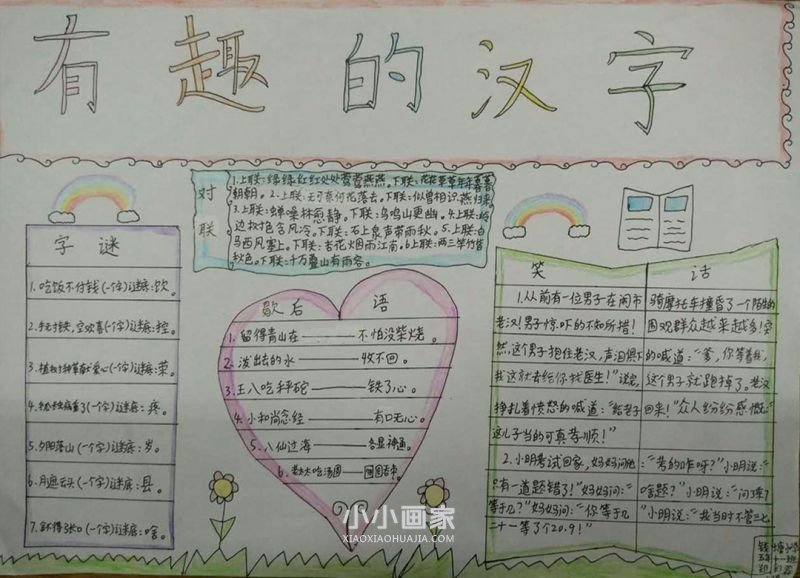 有趣的汉字
对联
1.上联:绿绿红红处处莺莺燕燕。下联:花花草草年年暮暮
朝朝。2.上联:无可奈何花落去。下联:似曾相识燕归来。
3.上联:蝉噪林愈静。下联:鸟鸣山更幽。4.上联:岭
边树色含风冷。下联:石上泉声带雨秋。5.上联:白
马西风塞上。下联:杏花烟雨江南。6.上联:两三竿竹皆
秋色。下联:十万叠山有雨客。
字谜
1.吃饭不付钱(一个字)谜底:饮。
(一个字)谜底:控。
(一个字)谜底:荣。
(一个字)谜底:疼。
5.夕阳落山(一个字)谜底:岁。
(一个字)谜底:县。
(一个字)谜底:啥。
歇后语
1.留得青山在——不怕没柴烧。
2.泼出去的水——收不回。
3.王八吃秤砣——铁了心。
4.小和尚念经——有口无心。
5.八仙过海——各显神通。
6.老太太吃汤圆——囫囵吞枣。
笑话
1.从前有一位男子在闹市骑摩托车撞昏了一个陌生的
老汉!男子惊吓的不知所措!围观群众越来越多!突
然,这个男子抱住老汉,声泪俱下的喊道:“爹,你等着我,
我这就去给你找医生!”说完,这个男子就跑掉了。老汉
挣扎着愤怒的喊道:“给老子回来!”众人纷纷感慨:“
这儿子当的可真孝顺!”
2.小明考试回家,妈妈问他:“考的咋呀?”小明说:“
只有一道题错了!”妈妈问:“啥题?”小明说:“
等于几?”妈妈问:“你等于几”小明说:“我当时不管三七
二十一等了个20.9!”
小小画家
XIAOXIAOHUAJIA.COM